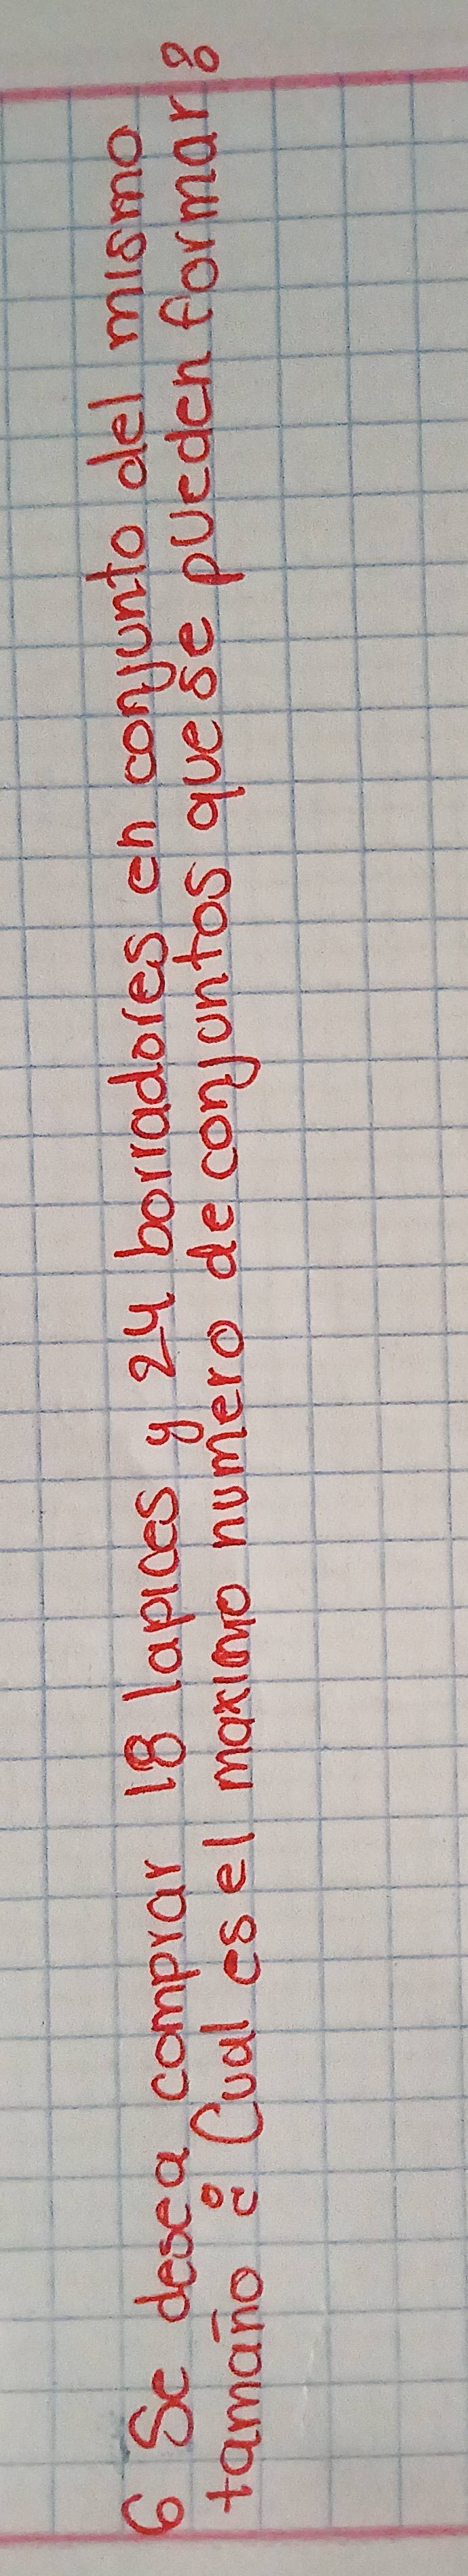 6 Se desea comprar 18 lapices y 24 borradores en conjunto del mismo
tamaño ¿ Cual es el maximo numero de conjuntos que se pueden formar?